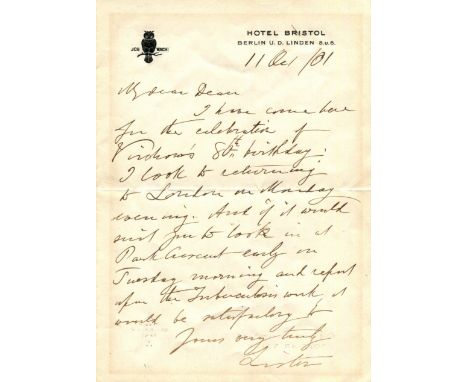 HOTEL BRISTOL
BERLIN U. D. LINDEN 5 u 6.
JCH WACH
11 Oct /01
My dear Dean
I have come here
for the celebration of
Virchow's 80th birthday.
I look to returning
to London on Monday
evening. And if it would
suit you to look in at
Park Crescent early on
Tuesday morning and report
upon the Tuberculosis work, it
would be satisfactory to
Yours very truly
Lister